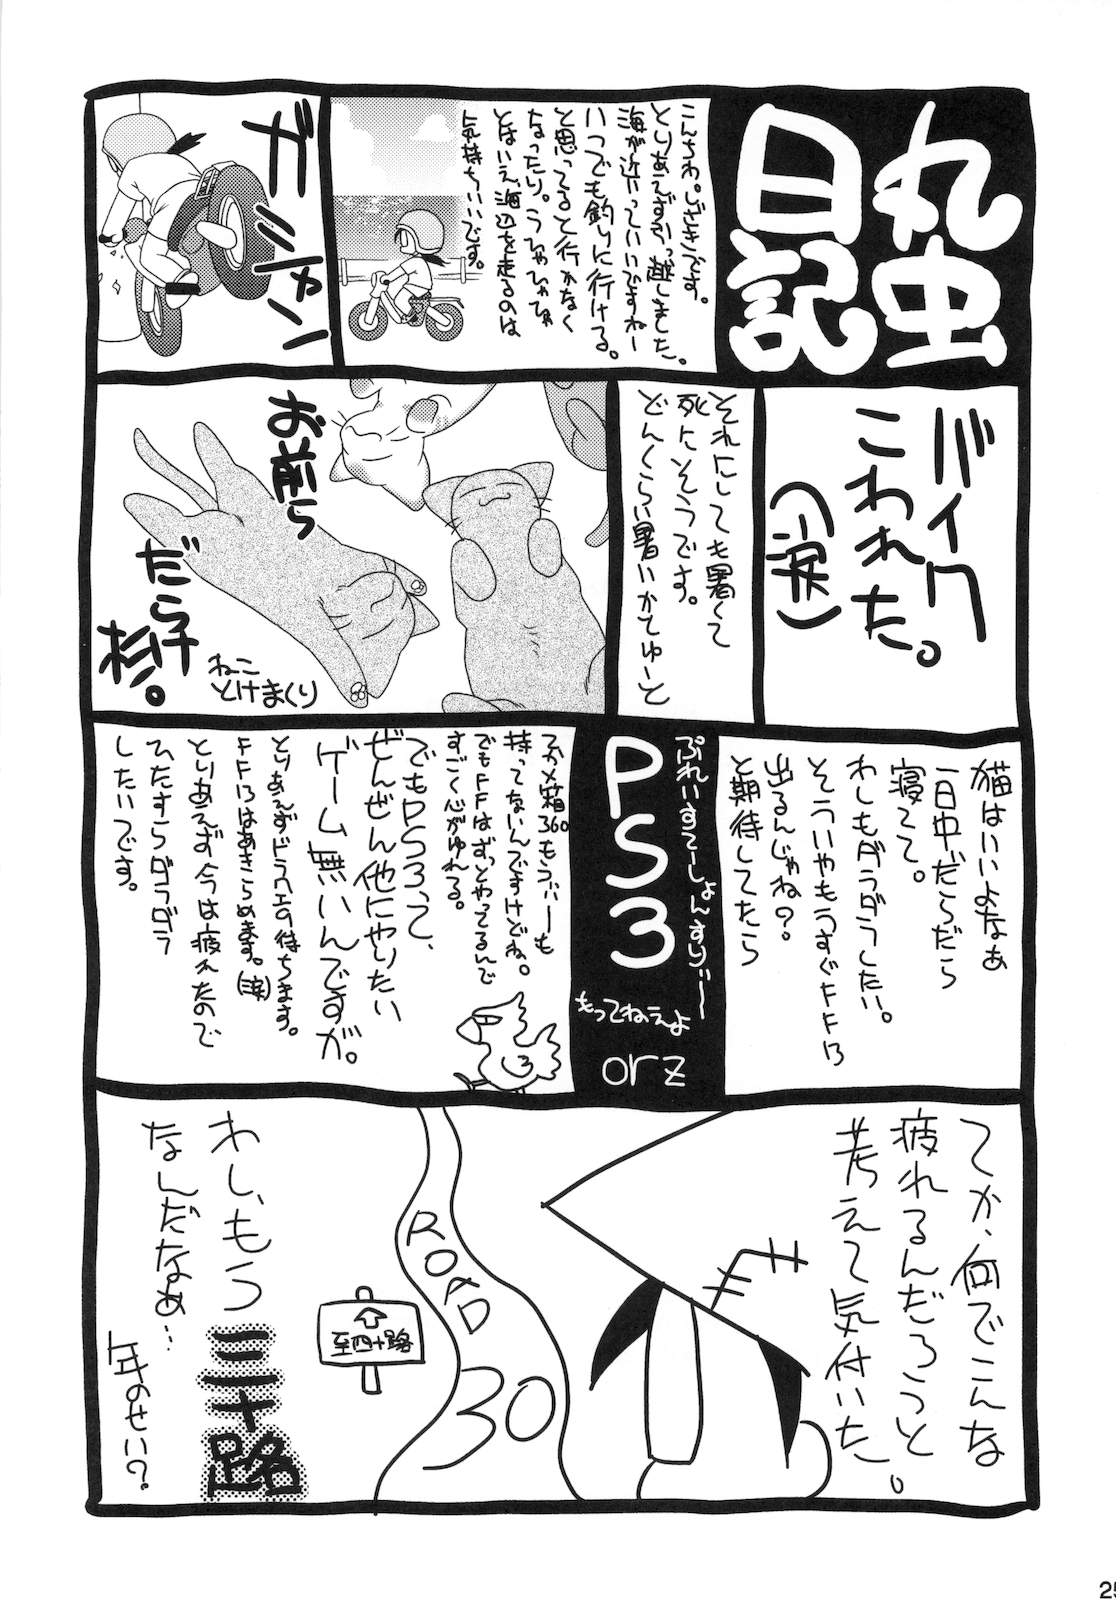 丸虫
日記
こんちわ。しざきです。
とりあえずひっ越しました。
海が近いっていいですねー
いつでも釣りに行ける。
と思ってると行かなく
なったり。うひゃひゃひゃ
とはいえ、海辺を走るのは
気持ちいいです。
ガシャン
バイク
こわれた。
(涙)
それにしても暑くて
死にそうです。
どんくらい暑いかてゆーと
お前ら
だら子
杉。
ねこ
とけまくり
猫はいいよなぁ
一日中だらだら
寝てて。
わしもダラダラしたい。
そういやもうすぐFF13
出るんじゃね?
と期待してたら
ぷれいすてーしょんすりぃ〜
PS3
もってねえよ
orz
てか×箱360もうぃーも
持ってないんですけどね。
でもFFはずっとやってるんで
すごく心がゆれる。
でもPS3、て、
ぜんぜん他にやりたい
ゲーム無いんですが。
とりあえずドラクエ9待ちます。
FF13はあきらめます。(涙)
とりあえず今は疲れたので
ひたすらダラダラ
したいです。
てか、何でこんな
疲れるんだろうと、
考えて気付いた。
ROAD
30
至四十路
わし、もう
三十路
なんだなぁ…
年のせい?
25